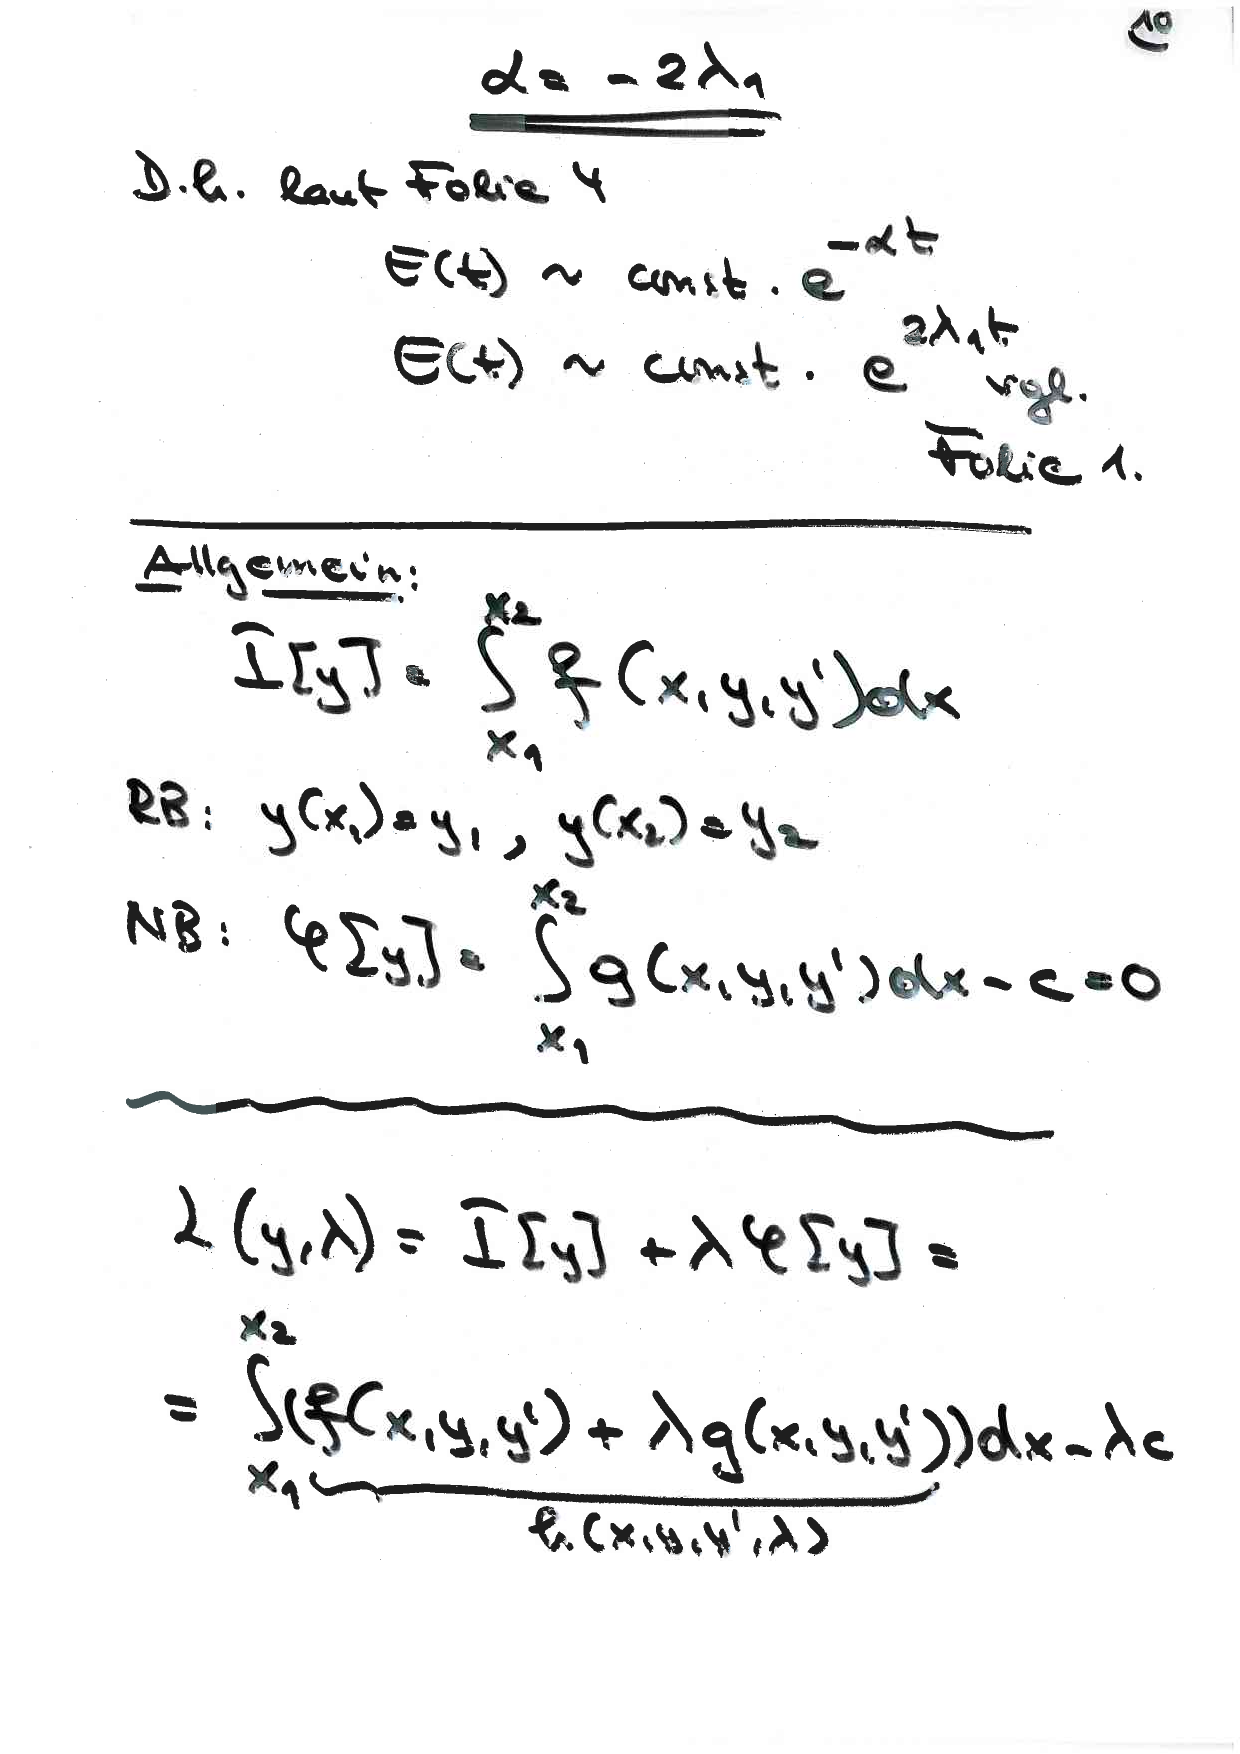 10
α = - 2λ₁
D.h. laut Folie 4
E(t) ~ const. e^{-αt}
E(t) ~ const. e^{2λ₁t} vgl.
Folie 1.
Allgemein:
I[y] = ∫_{x₁}^{x₂} f(x,y,y')dx
RB: y(x₁)=y₁, y(x₂)=y₂
NB: φ[y] = ∫_{x₁}^{x₂} g(x,y,y')dx - c = 0
L(y,λ) = I[y] + λφ[y] =
= ∫_{x₁}^{x₂} (f(x,y,y') + λg(x,y,y'))dx - λc
h(x,y,y',λ)